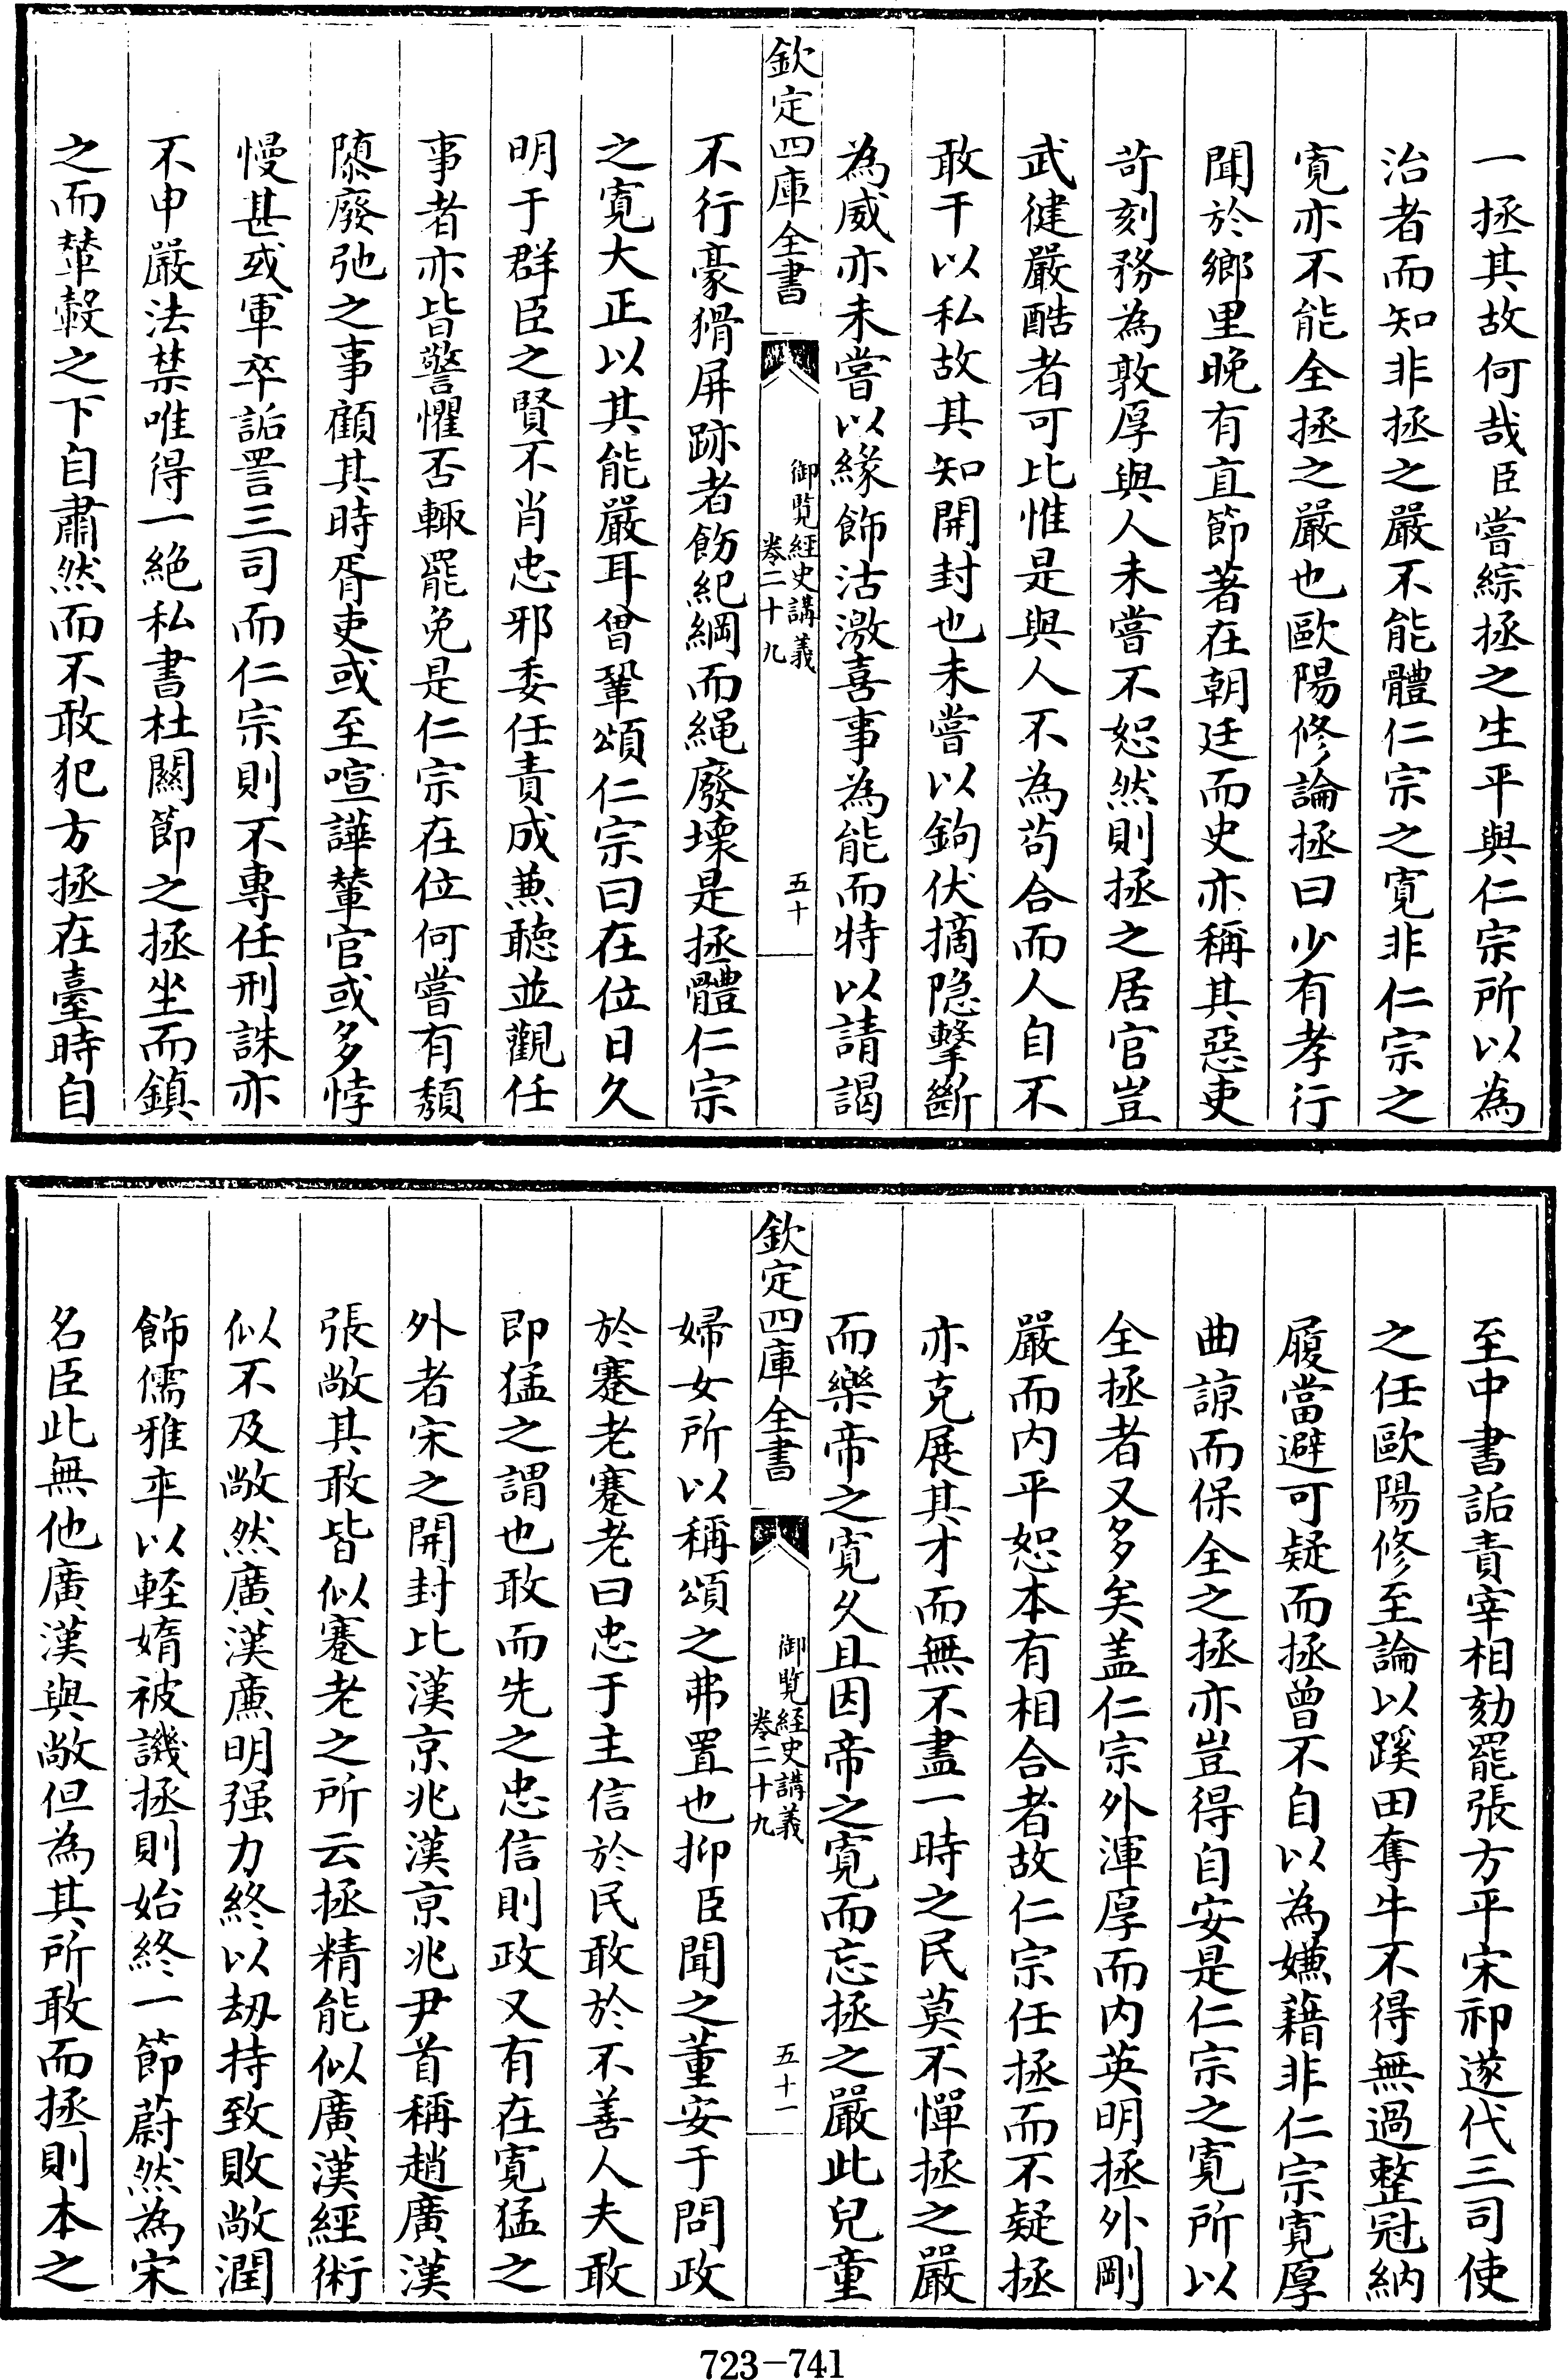 一拯其故何哉臣嘗綜拯之生平與仁宗所以為
治者而知非拯之嚴不能體仁宗之寛非仁宗之
寛亦不能全拯之嚴也歐陽修論拯曰少有孝行
聞於鄉里晚有直節著在朝廷而史亦稱其惡吏
苛刻務為敦厚與人未嘗不恕然則拯之居官豈
武健嚴酷者可比惟是與人不為苟合而人自不
敢干以私故其知開封也未嘗以鉤伏摘隐擊斷
為威亦未嘗以緣飾沽激喜事為能而特以請謁
欽定四庫全書
御覧經史講義
卷二十九
五十
不行豪猾屏跡者飭紀綱而繩廢壊是拯體仁宗
之寛大正以其能嚴耳曾鞏頌仁宗曰在位日久
明于群臣之賢不肖忠邪委任責成兼聽並觀任
事者亦皆警懼否輒罷免是仁宗在位何嘗有頽
隳廢弛之事顧其時胥吏或至喧譁輦官或多悖
慢甚或軍卒詬詈三司而仁宗則不專任刑誅亦
不申嚴法禁唯得一絶私書杜闗節之拯坐而鎮
之而輦轂之下自肅然而不敢犯方拯在臺時自
至中書詬責宰相劾罷張方平宋祁遂代三司使
之任歐陽修至論以蹊田奪牛不得無過整冠納
履當避可疑而拯曾不自以為嫌藉非仁宗寛厚
曲諒而保全之拯亦豈得自安是仁宗之寛所以
全拯者又多矣盖仁宗外渾厚而内英明拯外剛
嚴而内平恕本有相合者故仁宗任拯而不疑拯
亦克展其才而無不盡一時之民莫不憚拯之嚴
而樂帝之寛久且因帝之寛而忘拯之嚴此兒童
欽定四庫全書
御覧經史講義
卷二十九
五十一
婦女所以稱頌之弗置也抑臣聞之董安于問政
於蹇老蹇老曰忠于主信於民敢於不善人夫敢
即猛之謂也敢而先之忠信則政又有在寛猛之
外者宋之開封比漢京兆漢京兆尹首稱趙廣漢
張敞其敢皆似蹇老之所云拯精能似廣漢經術
似不及敞然廣漢廉明强力終以刼持致敗敞潤
飾儒雅卒以輕媠被譏拯則始終一節蔚然為宋
名臣此無他廣漢與敞但為其所敢而拯則本之
723-741